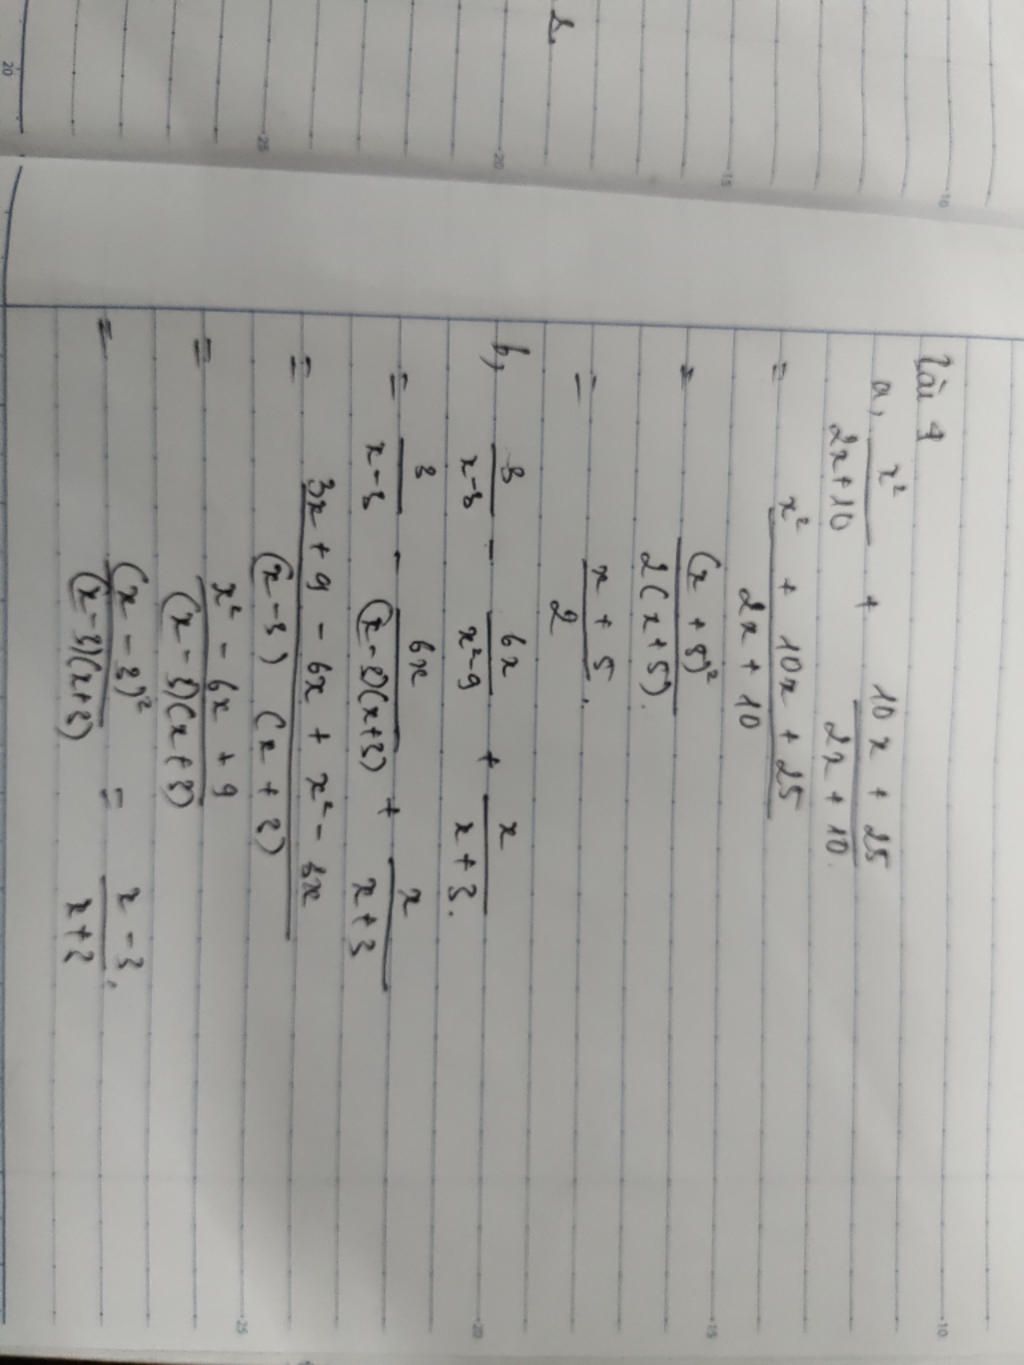 Bài 4
a, x²/2x+10 + 10x + 25/2x + 10.
= x² + 10x + 25/2x + 10
= (x + 5)²/2(x+5).
= x + 5/2.
b, 3/x-3 - 6x/x²-9 + x/x+3.
= 3/x-3 - 6x/(x-3)(x+3) + x/x+3
= 3x + 9 - 6x + x² - 3x/(x-3) (x + 3)
= x² - 6x + 9/(x-3)(x+3)
= (x-3)²/(x-3)(x+3) = x-3/x+3.